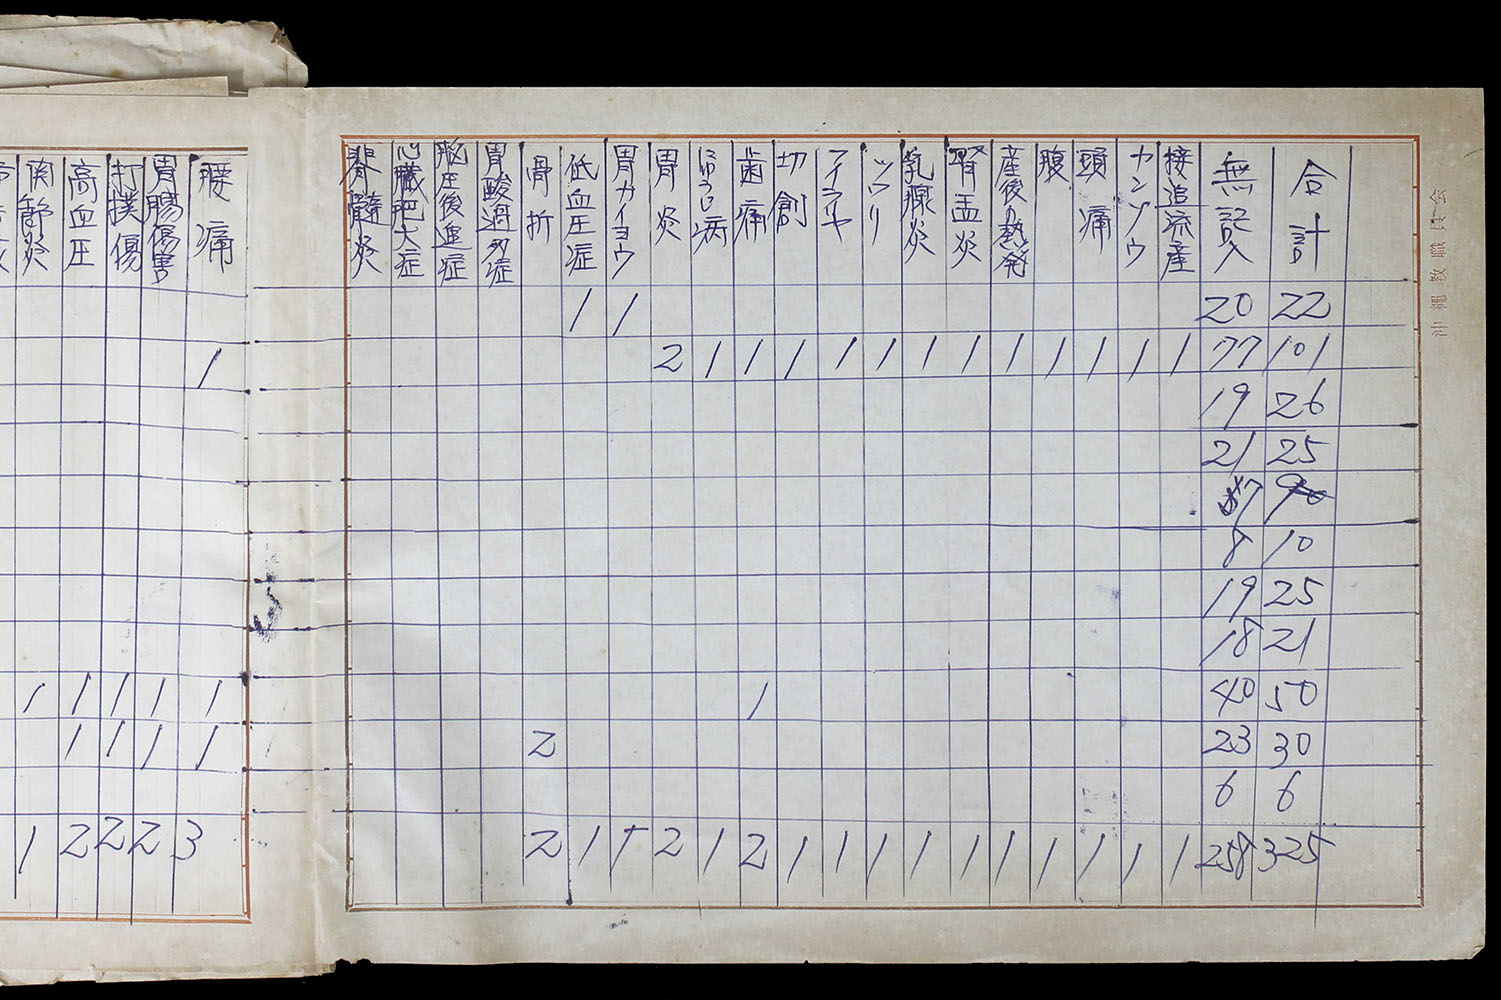 関節炎 高血圧 打撲傷 胃腸傷害 腰痛 脊髄炎 心臓肥大症 胃酸過多症 骨折 低血圧症 胃カイヨウ 胃炎 にゅうじ病 歯痛 切創 ツワリ 乳腺炎 腎盂炎 産後の熱発 腹 頭痛 カンゾウ 接迫流産 無記入 合計
1 1 20 22
1 2 1 1 1 1 1 1 1 1 1 1 1 1 77 101
19 26
21 25
7 9
8 10
19 25
18 21
1 1 1 1 1 1 40 50
1 1 1 1 2 23 30
6 6
1 2 2 2 3 2 1 1 2 1 2 1 1 1 1 1 1 1 1 1 1 258 325
沖縄教職員会